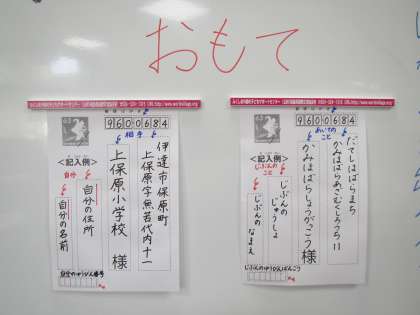 おもて
9600684
相手
伊達市保原町
上保原字無若代内十一
上保原小学校 様
<記入例>
自分
自分の住所
自分の名前
自分のゆうびん番号
9600684
あいての
こと
だてしほばらまち
かみほばらしょうがっこう 様
<記入例>
じぶんの
こと
じぶんの
じゅうしょ
じぶんの
なまえ
じぶんのゆうびんばんごう